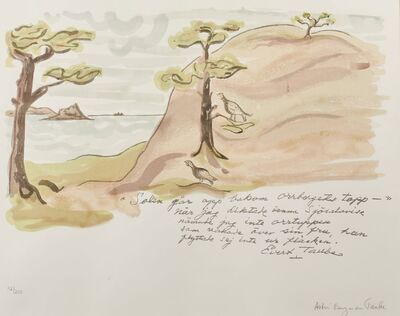 "Solen går upp bakom Orrberget topp —"
när jag diktade denna Sjösalavisa
nämnde jag inte orrtuppen
som vakade över sin fru, han
flyttade sej inte ur fläcken.
Evert Taube
/200
Astri Bergman Taube